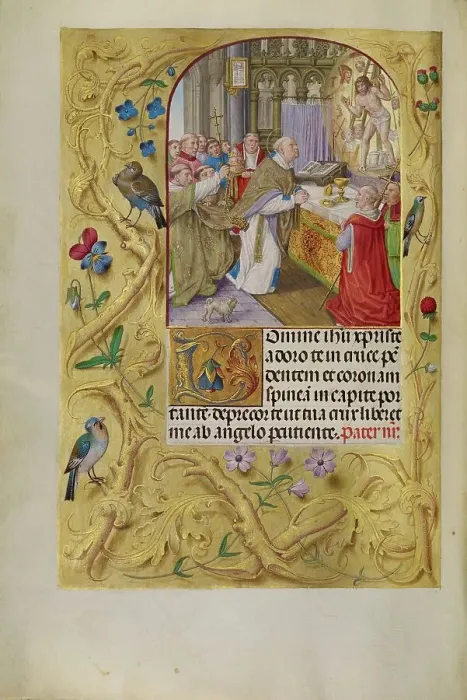 Domine ihu xpriste
adoro te in cruce pē
dentem et coronam
spineā in capite por
tantē deprecor te ut tua crux liberet
me ab angelo ꝑcutiente. Pater nr̄.